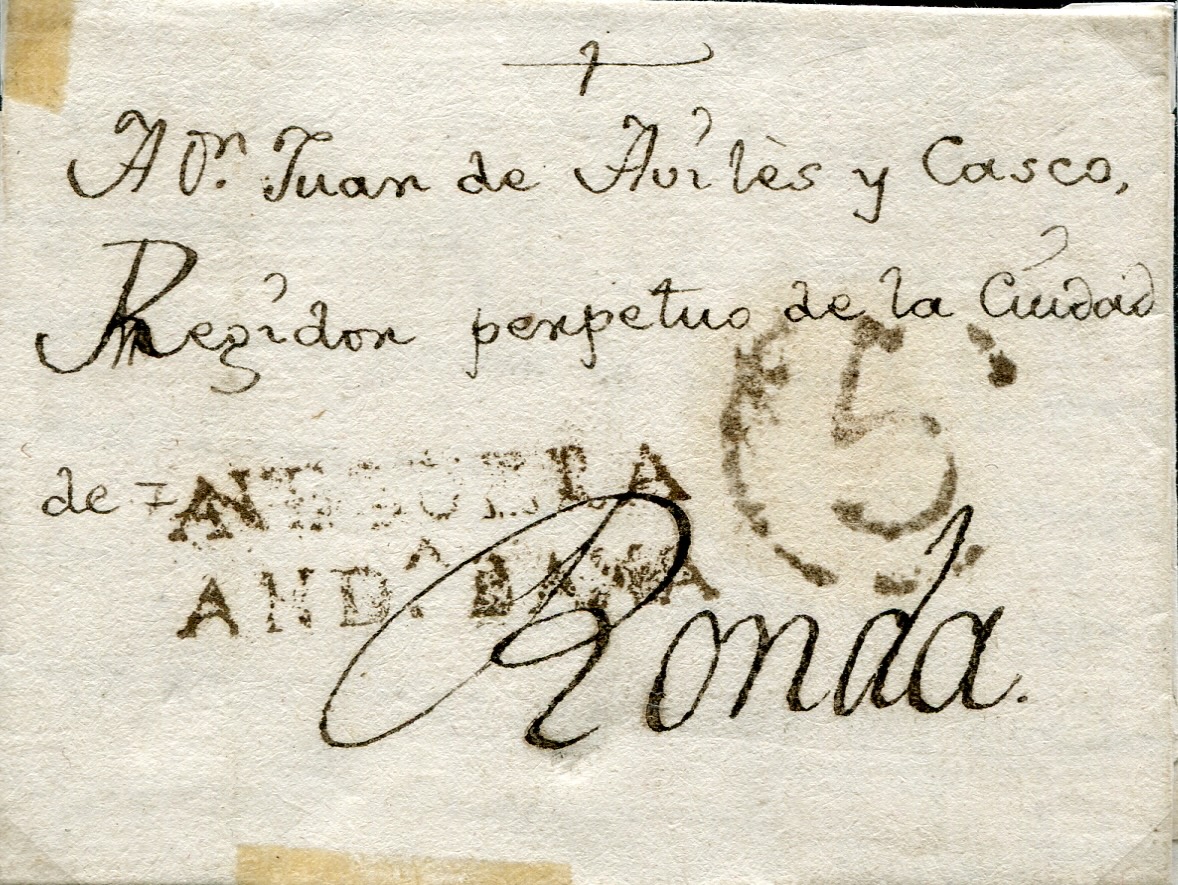 A Dⁿ. Juan de Avilès y Casco,
Regidor perpetuo de la Ciudad
5
de
ANDᴬ BAXA
Ronda.